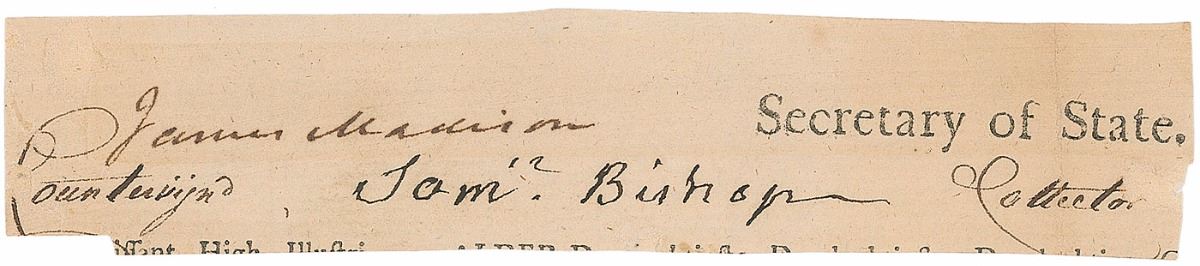 James Madison Secretary of State.
Countersign'd Sam'l. Bishop Collector
High Illustri